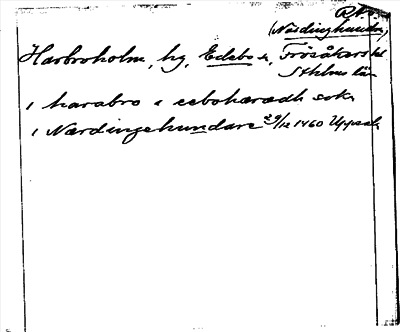 (Närdinghundra)
Harbroholm, hg, Edebo sn, Frösåkers hd
Sthlms län
i harabro i eebohæradh sokn
i Nærdingehundare 29/12 1460 Uppsala